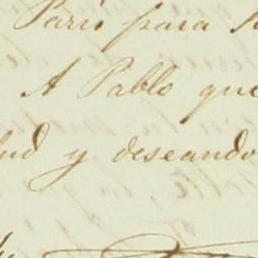 Paris para
A Pablo que
lud y deseando